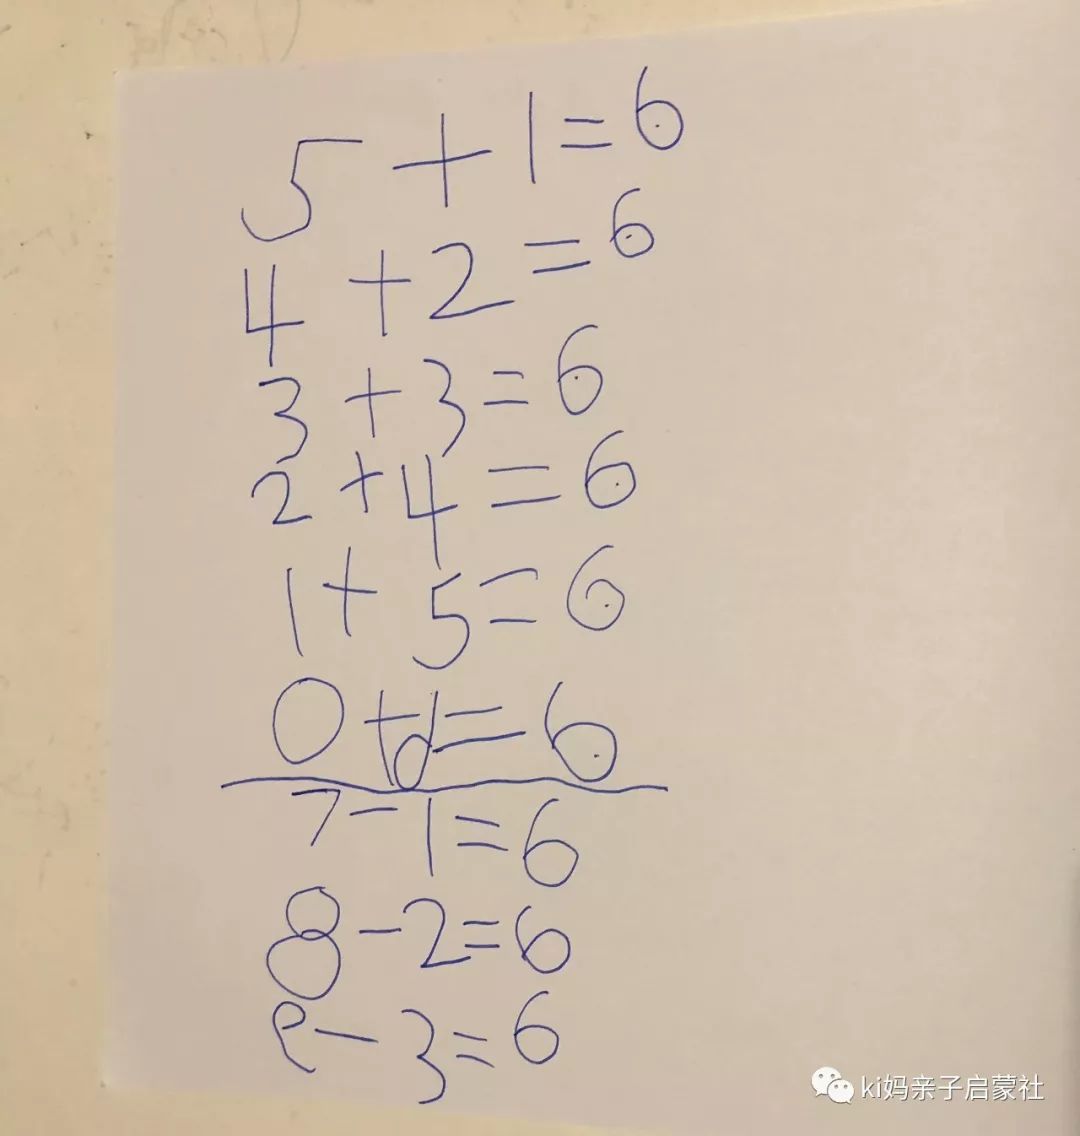 5+1=6
4+2=6
3+3=6
2+4=6
1+5=6
0+6=6
7-1=6
8-2=6
9-3=6
ki妈亲子启蒙社